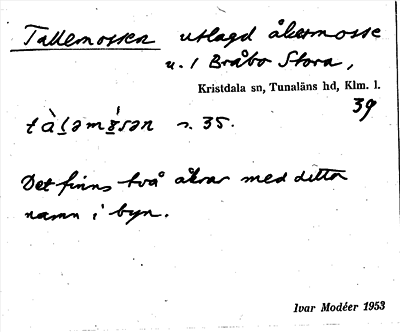 Tallemossen utlagd åkermosse
u. 1 Bråbo Stora,
Kristdala sn, Tunaläns hd, Klm. l.
39
s. 35.
Det finns två åkrar med detta
namn i byn.
Ivar Modéer 1953